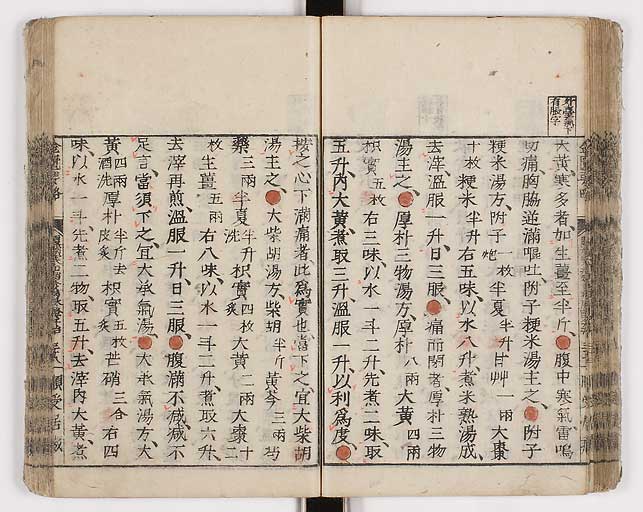 外臺寒下
有脹字
大黃寒多者加生薑至半斤腹中寒氣雷鳴
切痛胸脇逆滿嘔吐附子粳米湯主之附子
粳米湯方附子一枚炮半夏半升甘艸一兩大棗
十枚粳米半升右五味以水八升煮米熟湯成
去滓溫服一升日三服痛而閉者厚朴三物
湯主之厚朴三物湯方厚朴八兩大黃四兩
枳實五枚右三味以水一斗二升先煮二味取
五升內大黃煮取三升溫服一升以利爲度
按之心下滿痛者此爲實也當下之宜大柴胡
湯主之大柴胡湯方柴胡半斤黃芩三兩芍
藥三兩半夏半升洗枳實四枚大黃二兩大棗十
枚生薑五兩右八味以水一斗二升煮取六升
去滓再煎溫服一升日三服腹滿不減減不
足言當須下之宜大承氣湯大承氣湯方大
黃四兩酒洗厚朴半斤去皮炙枳實五枚炙芒硝三合右四
味以水一斗先煮二物取五升去滓內大黃煮